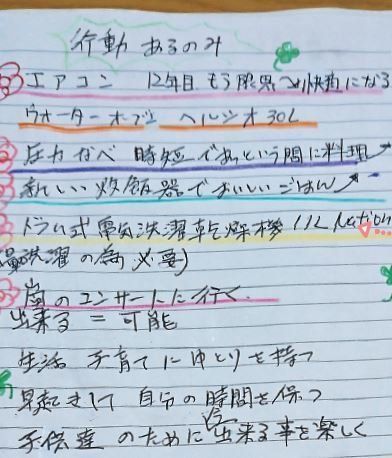 行動 あるのみ
エアコン 12年目 もう限界→快適になる
ウォーターオーブン ヘルシオ30L
圧力なべ 時短であっという間に料理
新しい炊飯器でおいしいごはん
ドラム式電気洗濯乾燥機 11L
洗濯の為 必要)
嵐のコンサートに行く
出来る = 可能
生活 子育てにゆとりを持つ
早起きして 自分の時間を保つ
子供達のために 出来る事を楽しく